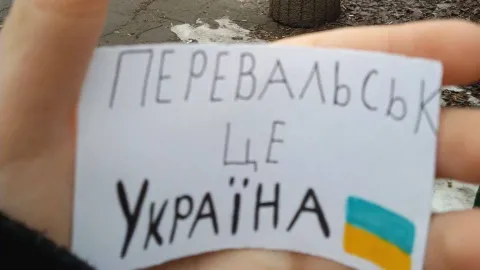 ПЕРЕВАЛЬСЬК
ЦЕ
УКРАЇНА